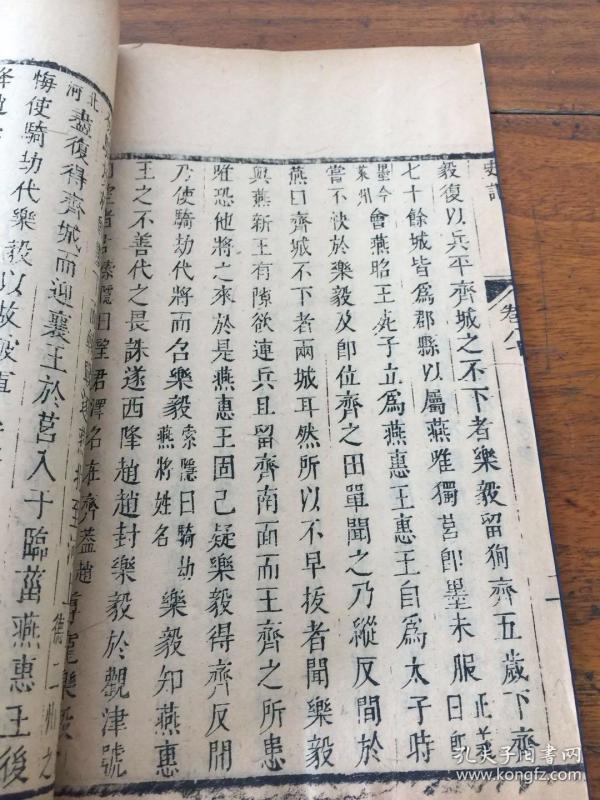 史記
卷八十
二
毅復以兵平齊城之不下者樂毅留徇齊五歲下齊
七十餘城皆爲郡縣以屬燕唯獨莒卽墨未服正義曰卽
墨今萊州會燕昭王死子立爲燕惠王惠王自爲太子時
嘗不快於樂毅及卽位齊之田單聞之乃縱反間於
燕曰齊城不下者兩城耳然所以不早拔者聞樂毅
與燕新王有隙欲連兵且留齊南面而王齊之所患
唯恐他將之來於是燕惠王固已疑樂毅得齊反間
乃使騎劫代將而召樂毅索隱曰騎劫燕將姓名樂毅知燕惠
王之不善代之畏誅遂西降趙趙封樂毅於觀津號
索隱曰望君澤名在齊蓋趙
河北盡復得齊城而迎襄王於莒入于臨菑燕惠王後
悔使騎劫代樂毅以故破
孔夫子旧书网
www.kongfz.com